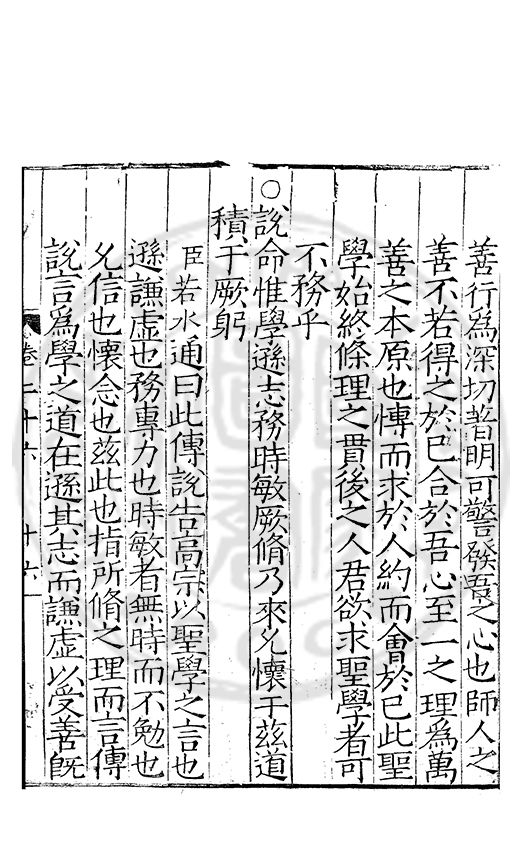 善行爲深切著明可警發吾之心也師人之
善不若得之於已合於吾心至一之理爲萬
善之本原也博而求於人約而會於已此聖
學始終條理之貫後之人君欲求聖學者可
不務乎
○說命惟學遜志務時敏厥脩乃來允懷于兹道
積于厥躬
臣若水通曰此傅說告高宗以聖學之言也
遜謙虚也務專力也時敏者無時而不勉也
允信也懷念也兹此也指所脩之理而言傅
說言爲學之道在遜其志而謙虚以受善旣
卷二十六 十六